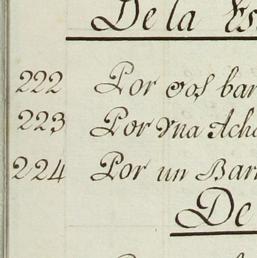 De la Es
222 Por dos bar
223 Por Vna Acha
224 Por un Barr
De